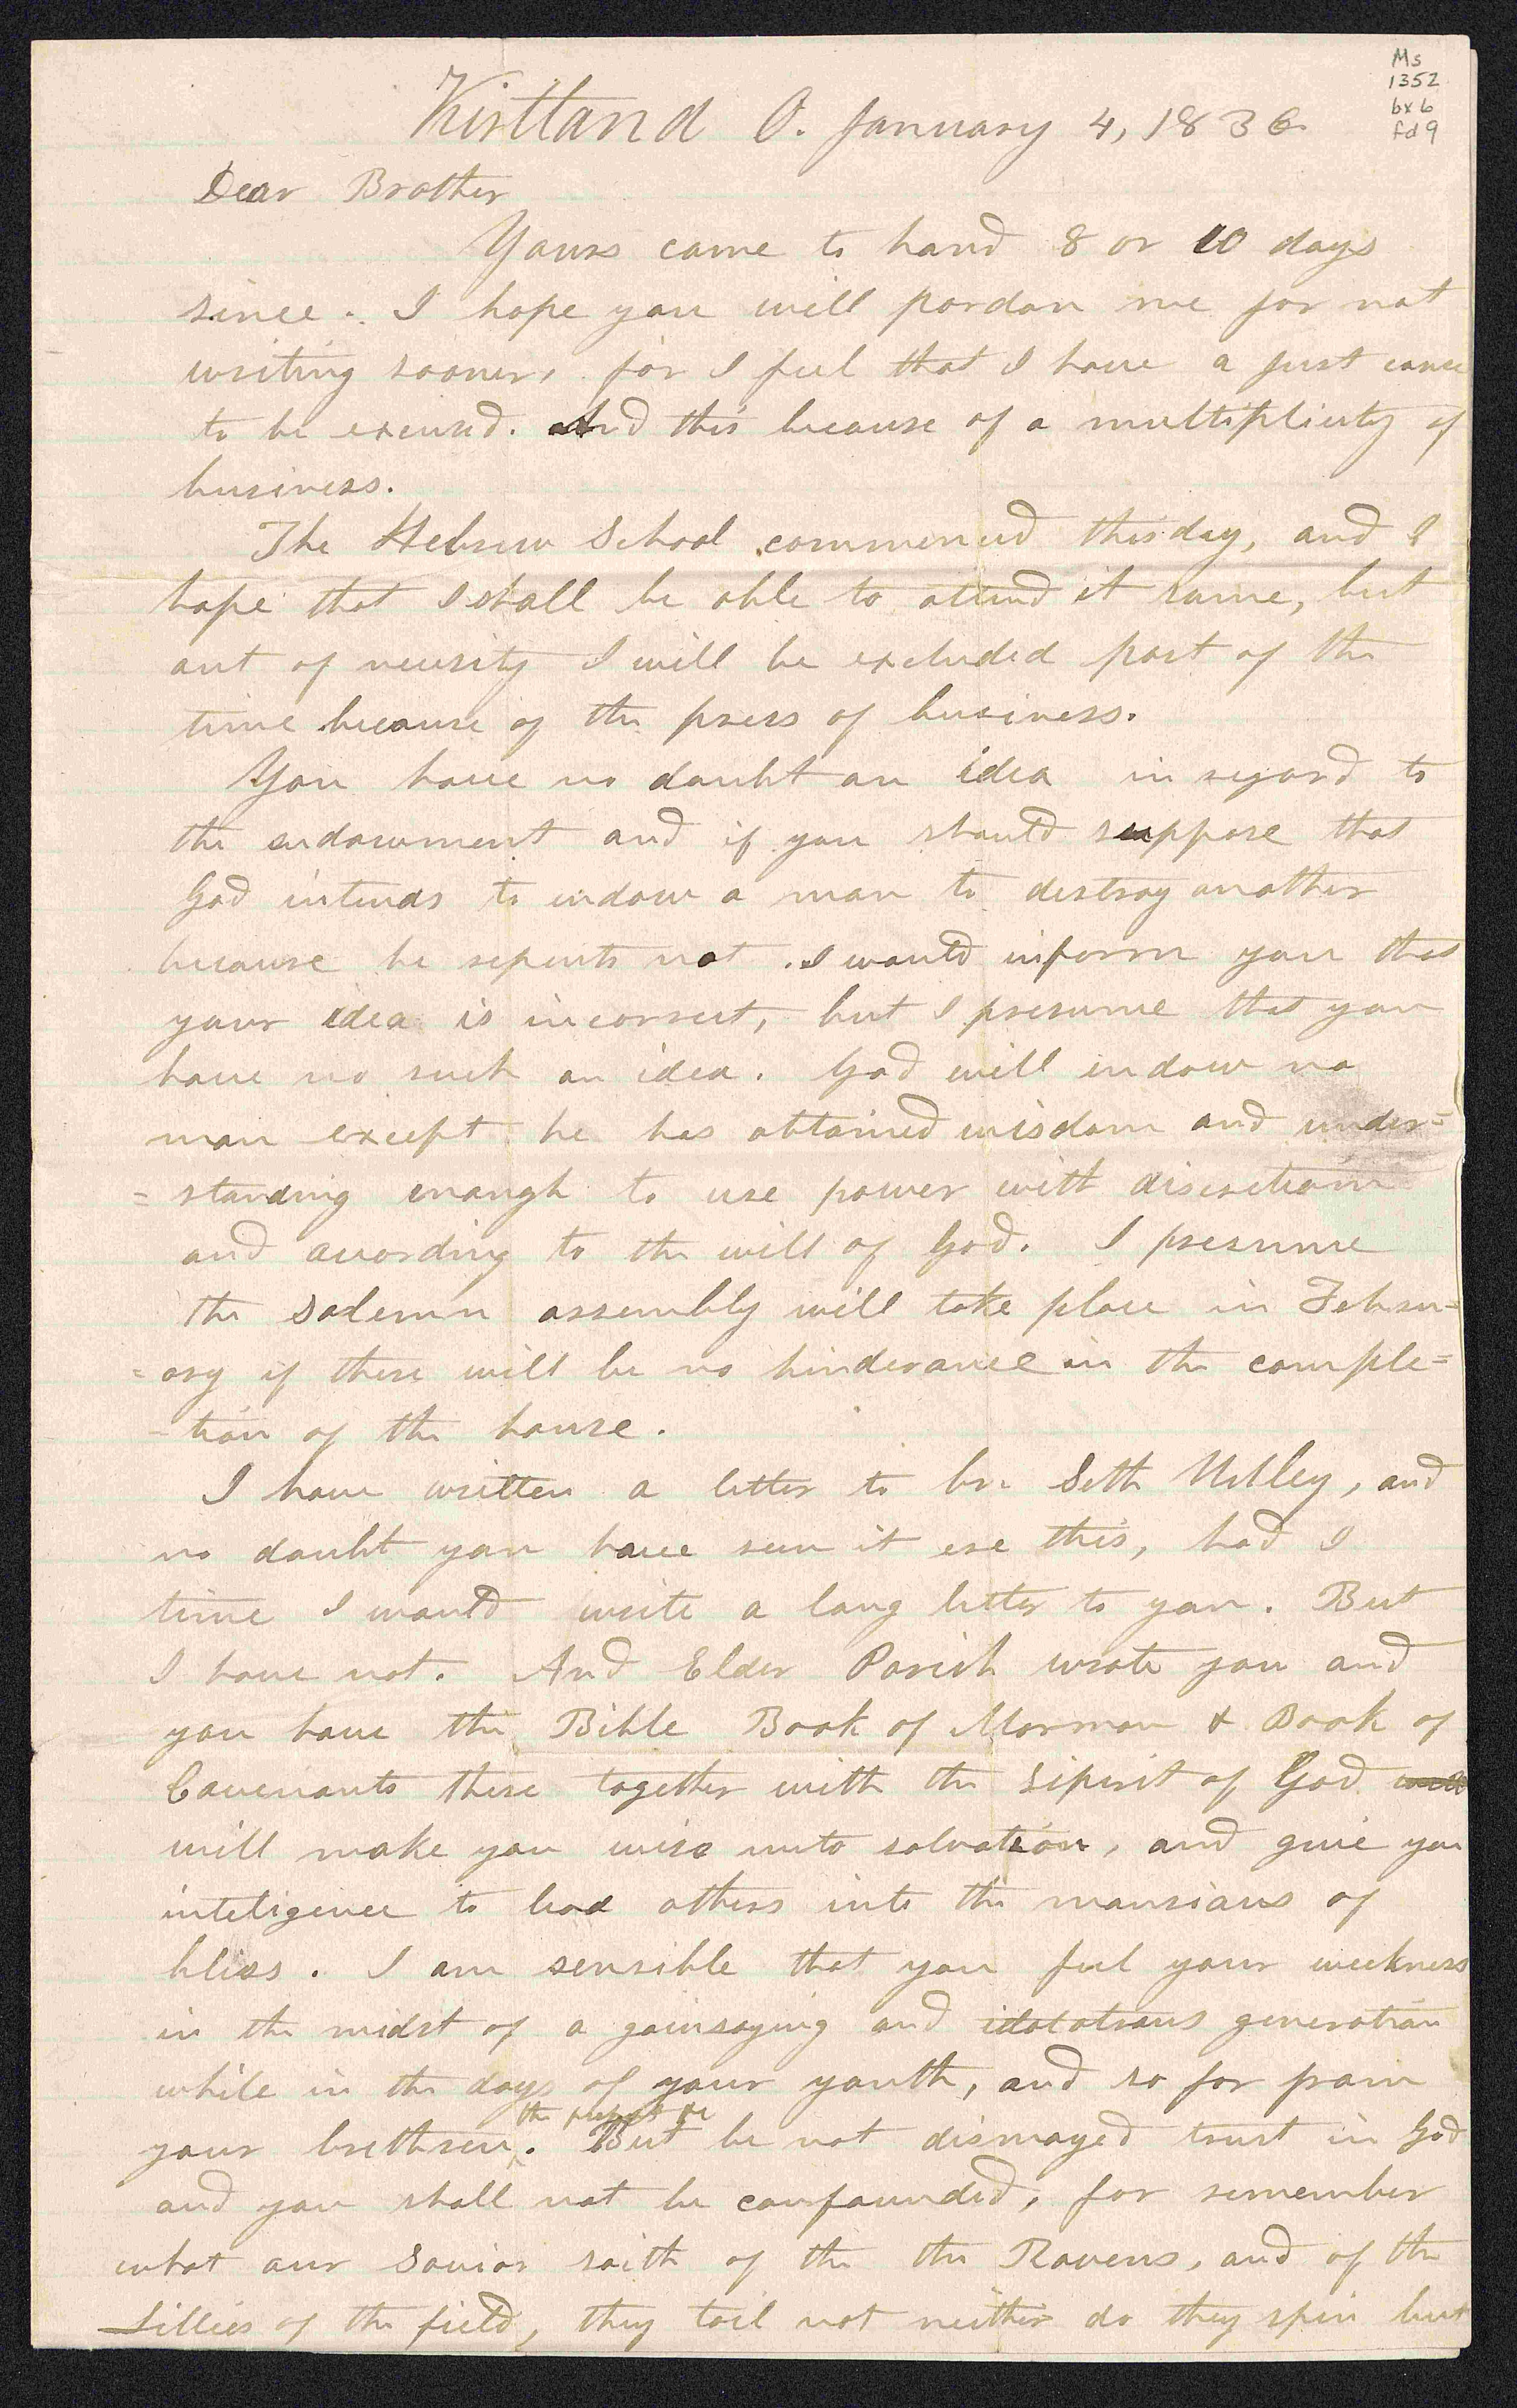 Ms
1352
bx 6
fd 9
Kirtland O. January 4, 1836
Dear Brother
Yours came to hand 8 or 10 days
since. I hope you will pardon me for not
writing sooner, for I feel that I have a just cause
to be excused. And this because of a multiplicity of
business.
The Hebrew School commenced this day, and I
hope that I shall be able to attend it some, but
out of necessity I will be excluded part of the
time because of the press of business.
You have no doubt an idea in regard to
the endowment and if you should suppose that
God intends to endow a man to destroy another
because he repents not. I would inform you that
your idea is incorrect, but I presume that you
have no such an idea. God will endow no
man except he has obtained wisdom and under=
=standing enough to use power with discretion
and according to the will of God. I presume
the solemn assembly will take place in Febru=
=ary if there will be no hinderance in the comple=
-tion of the house.
I have written a letter to br. Seth Utley, and
no doubt you have seen it ere this, had I
time I would write a long letter to you. But
I have not. And Elder Parish wrote you and
you have the Bible Book of Mormon & Book of
Covenants these together with the sipirit of God
will make you wise unto salvation, and give you
inteligence to lead others into the mansions of
bliss. I am sensible that you feel your weekness
in the midst of a gainsaying and idolatrous generation
while in the days of your youth, and so far from
the
your brethren. But be not dismayed trust in God
and you shall not be confounded, for remember
what our Savior saith of the the Ravens, and of the
Lillies of the field, they toil not neither do they spin but